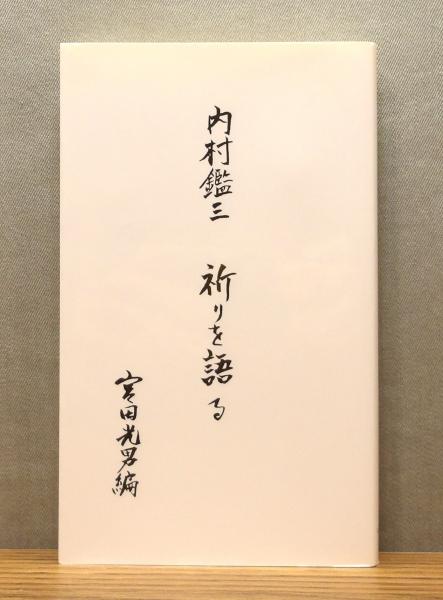 内村鑑三 祈りを語る
宮田光男編